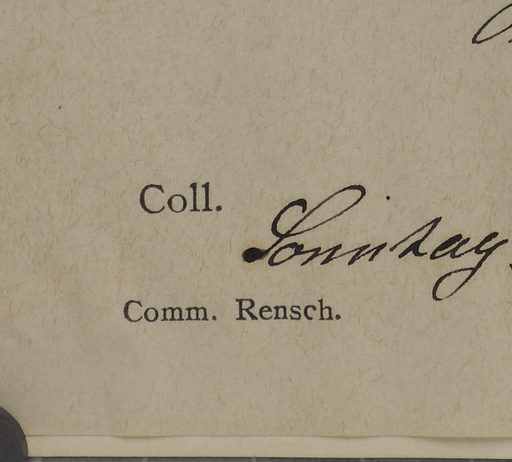 Coll. Sonntag
Comm. Rensch.